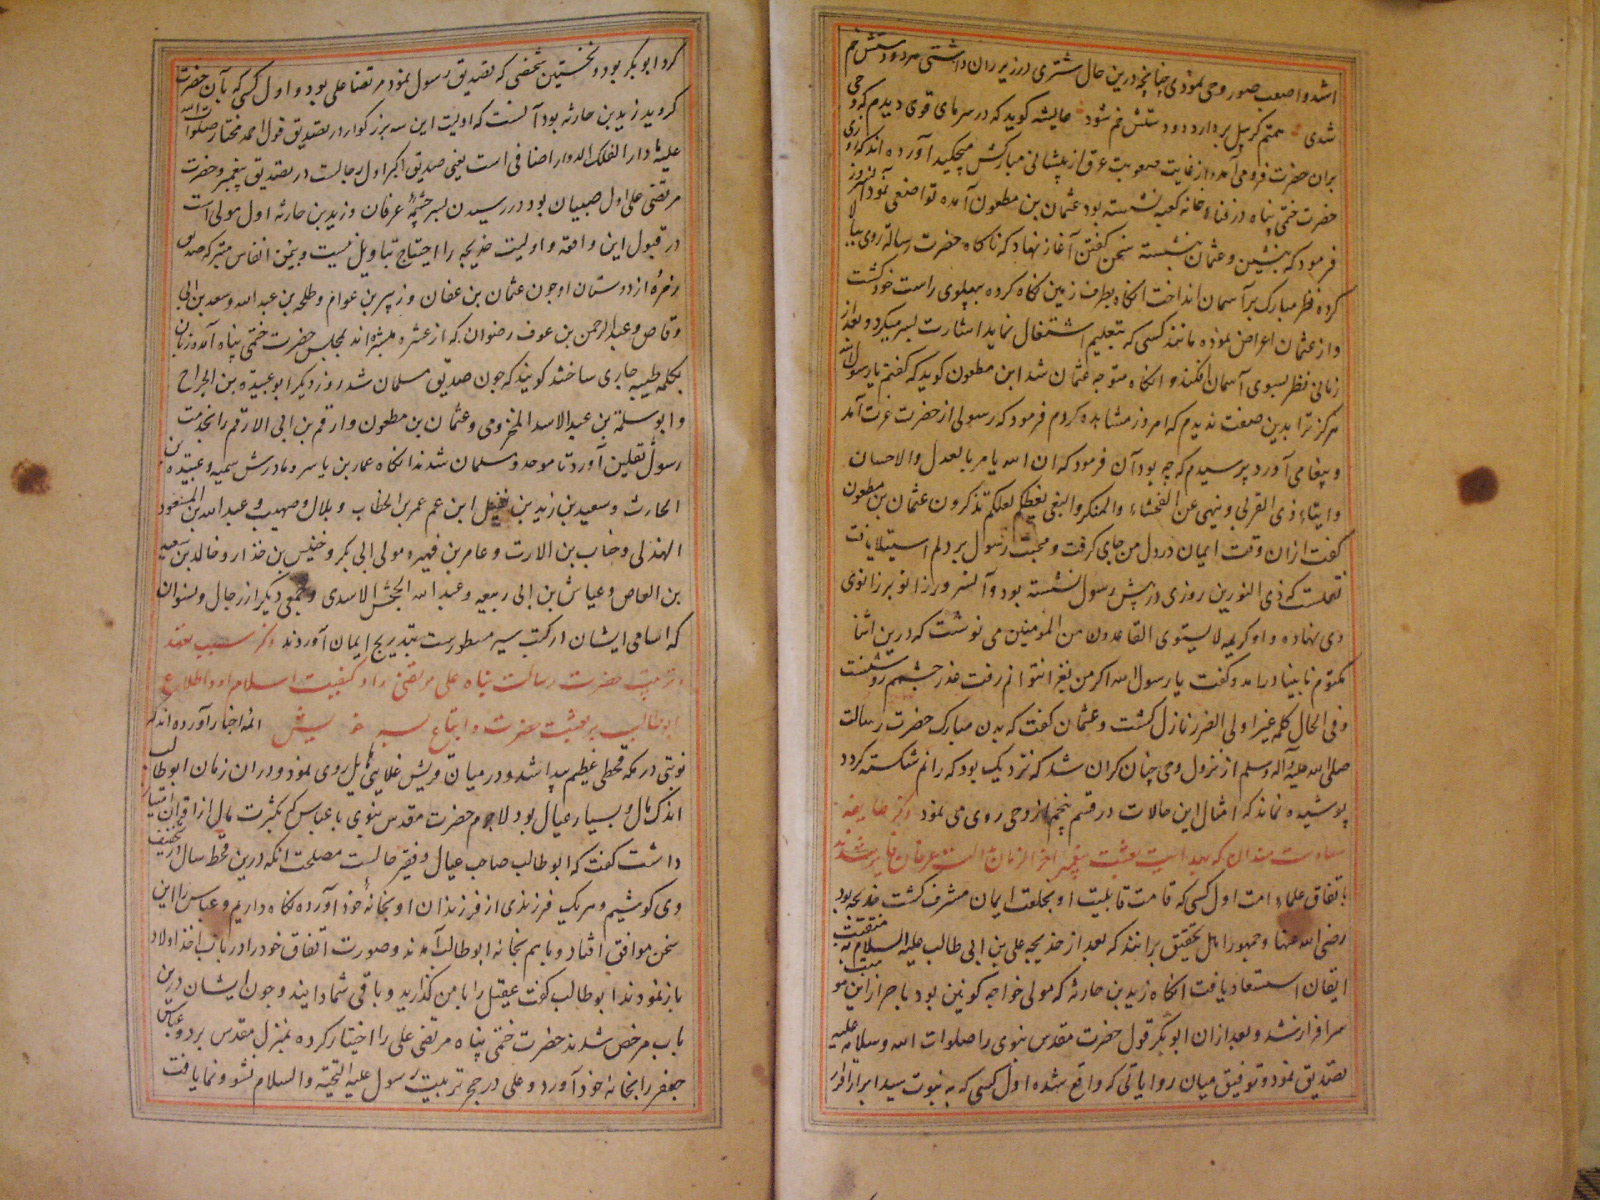 اشد و اصعب صور وحی نمودی چنانچه درین حال شتری در زیر ران داشتی هر دو دستش خم
شدی هشتم کرسل بردارد و دستش خم شود عایشه کوید که در سرمای قوی دیدم که وحی
بران حضرت فرو می آمد و از غایت صعوبت عرق از پیشانی مبارکش میچکید آورده اند که روزی
حضرت ختمی پناه در فناء خانه کعبه نشسته بود عثمان بن مظعون آمده تواضعی نمود آنسرور
فرمود که بنشین و عثمان بنشسته سخن کفتن آغاز نهاد که ناکاه حضرت رسالة روی ببالا
کرده نظر مبارک بر آسمان انداخت انکاه بطرف زمین نکاه کرده بپهلوی راست خود کشت
و از عثمان اعراض نموده مانند کسی که بتعلیم اشتغال نماید اشارت بسر میکرد و بعد از
زمانی نظر بسوی آسمان افکند و انکاه متوجه عثمان شد ابن مظعون کوید که کفتم یا رسول الله
هرکز ترا بدین صفت ندیدم که امروز مشاهده کردم فرمود که رسولی از حضرت عزت آمد
و پیغامی آورد پرسیدم که چه بود آن فرمود که ان الله یامر بالعدل والاحسان
و ایتاء ذی القربی و ینهی عن الفحشاء والمنکر والبغی یعظکم لعلکم تذکرون عثمان بن مظعون
کفت ازان وقت ایمان در دل من جای کرفت و محبت رسول بر دلم استیلا یافت
نقلست که ذی النورین روزی در پیش رسول نشسته بود و آنسرور زانو بر زانوی
وی نهاده و او کریمه لا یستوی القاعدون من المومنین می نوشت که درین اثنا
مکتوم نابینا درامد و کفت یا رسول الله اکر من بغزا نتوانم رفت عذر چشمم روشنست
و فی الحال کلمه غیر اولی الضرر نازل کشت و عثمان کفت که بدن مبارک حضرت رسالت
صلی الله علیه و آله وسلم از نزول وحی چنان کران شد که نزدیک بود که رانم شکسته کردد
پوشیده نماند که امثال این حالات در قسم پنجم از وحی روی می نمود ذکر طایفه
سعادت مندان که ببدایت بعثت پیغمبر آخر الزمان بدولت عرفان فایز شدند
باتفاق علماء امت اول کسی که قامت قابلیت او بخلعت ایمان مشرف کشت خدیجه بود
رضی الله عنها و جمهور اهل تحقیق برانند که بعد از خدیجه علی بن ابی طالب علیه السلام به منقبت
ایقان استسعاد یافت انکاه زید بن حارثه که مولی خواجه کونین بود باحراز این موهبت
سرافراز شد و بعد ازان ابوبکر قول حضرت مقدس نبوی را صلوات الله وسلامه علیه
تصدیق نمود و توفیق میان روایاتی که واقع شده اول کسی که به نبوت سید ابرار اقرار
کرد ابوبکر بود و نخستین شخصی که تصدیق رسول نمود مرتضا علی بود و اول کسی که بآن حضرت
کروید زید بن حارثه بود آنست که اولیت این سه بزرکوار در تصدیق قول احمد مختار صلوات الله
علیه ما دار الفلک الدوار اضافی است یعنی صدیق اکبر اول رجالست در تصدیق پیغمبر و حضرت
مرتضی علی اول صبیان بود در رسیدن بسر چشمهٔ عرفان و زید بن حارثه اول موالی است
در قبول این واقعه و اولیت خدیجه را احتیاج بتاویل نیست و بیمن انفاس متبرکه صدیق
زمرهٔ از دوستان او چون عثمان بن عفان و زبیر بن عوام و طلحه بن عبد الله و سعد بن ابی
وقاص و عبد الرحمن بن عوف رضوان که از عشره مبشره اند بمجلس حضرت ختمی پناه آمده زبان
بکلمه طیبه جاری ساختند کویند که چون صدیق مسلمان شد روز دیکر ابو عبیده بن الجراح
و ابو سلمة بن عبد الاسد المخزومی و عثمان بن مظعون و ارقم بن ابی الارقم را بخدمت
رسول ثقلین آورد تا موحد و مسلمان شدند انکاه عمار بن یاسر و مادرش سمیه و عبیده بن
الحارث و سعید بن زید بن نفیل ابن عم عمر بن الخطاب و بلال و صهیب و عبد الله بن المسعود
الهذلی و خباب بن الارت و عامر بن فهیره مولی ابی بکر و خنیس بن حذار و خالد بن سعید
بن العاص و عیاش بن ابی ربیعه و عبد الله الجحش الاسدی و جمعی دیکر از رجال و نسوان
که اسامی ایشان در کتب سیر مسطورست بتدریج ایمان آوردند ذکر سبب تعهد
و تربیت حضرت رسالت پناه علی مرتضی را و کیفیت اسلام او و اطلاع
ابوطالب بر بعثت حضرت و اتباع پسر خویش ائمه اخبار آورده اند که
نوبتی در مکه قحطی عظیم پیدا شد و در میان قریش غلایی هایل روی نمود و دران زمان ابوطالب
اندک مال و بسیار عیال بود لاجرم حضرت مقدس نبوی با عباس که بکثرت مال از اقران امتیاز
داشت کفت که ابوطالب صاحب عیال و فقیر حالست مصلحت انکه درین قحط سال در تخفیف
وی کوشیم و هریک فرزندی از فرزندان او بخانهٔ خود آورده نکاه داریم و عباس را این
سخن موافق افتاد و باهم بخانه ابوطالب آمدند و صورت اتفاق خود را در باب اخذ اولاد
باز نمودند ابوطالب کفت عقیل را با من کذارید و باقی شما دانید و چون ایشان درین
باب مرخص شدند حضرت ختمی پناه مرتضی علی را اختیار کرده بمنزل مقدس برد و عباس
جعفر را بخانه خود آورد و علی در حجر تربیت رسول علیه التحیته والسلام نشو و نما یافت